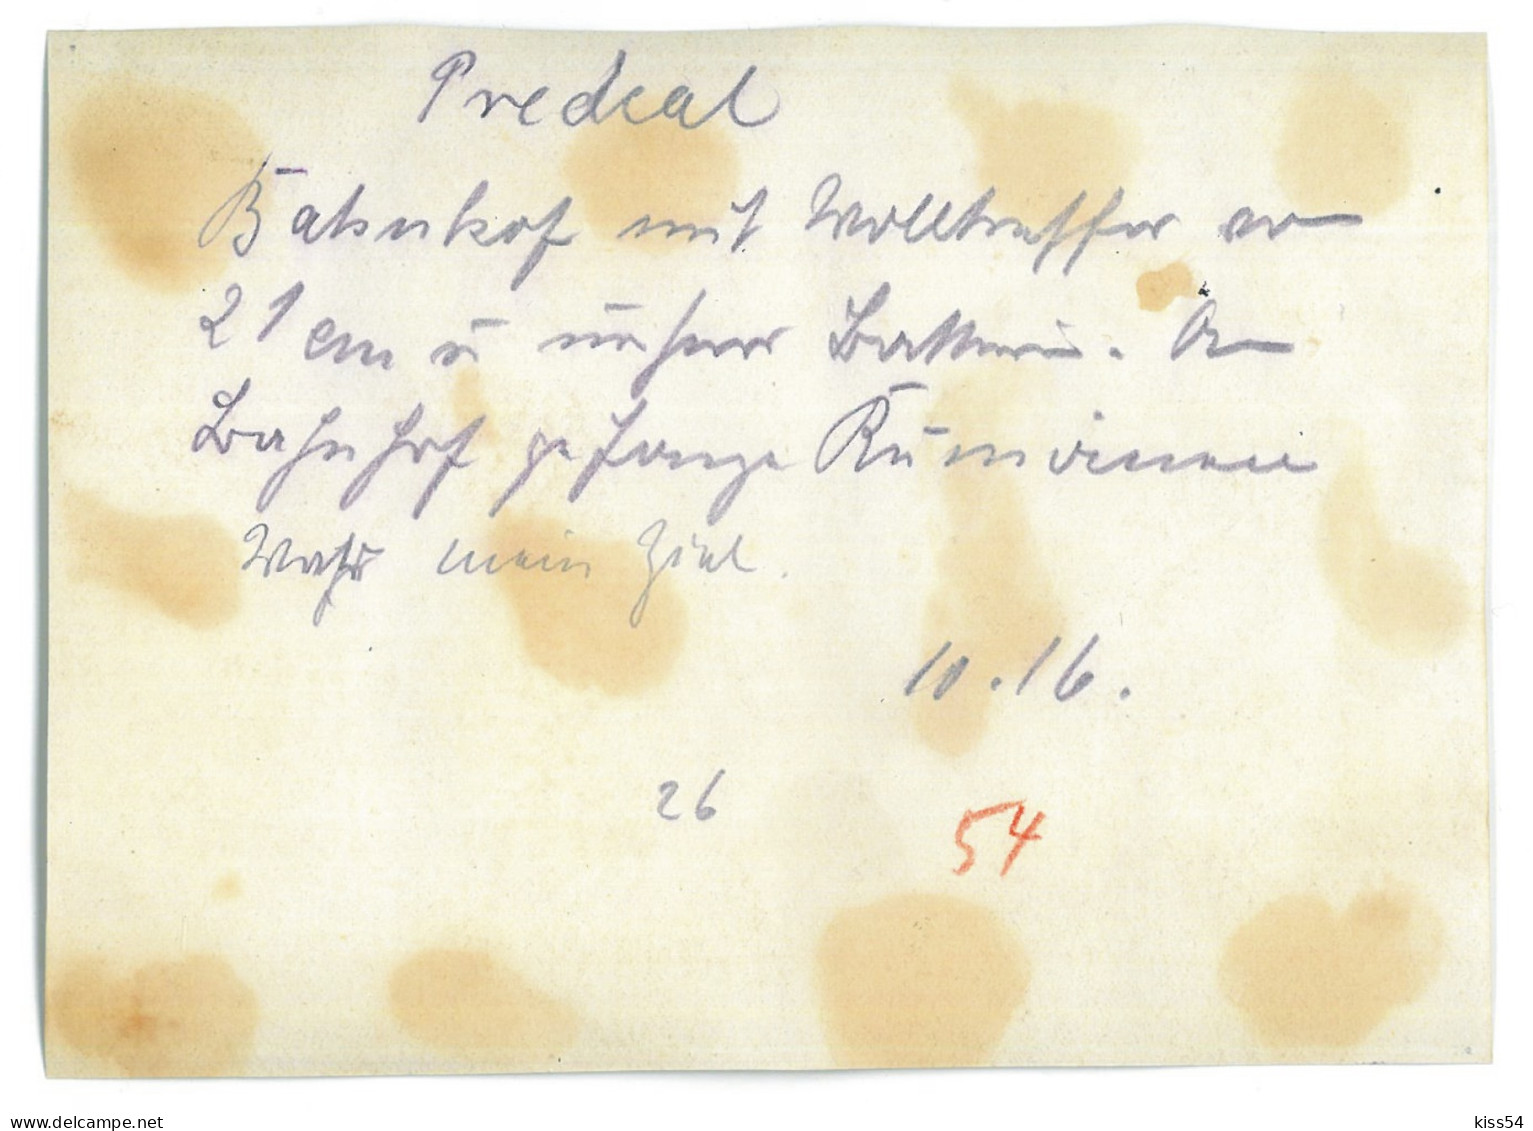 Predeal
Bahnhof mit Volltreffer von
21 cm u unserer Batterie. Am
Bahnhof gefange Rumänen
Wahr mein Ziel.
10.16.
26
54
delcampe.net
kiss54